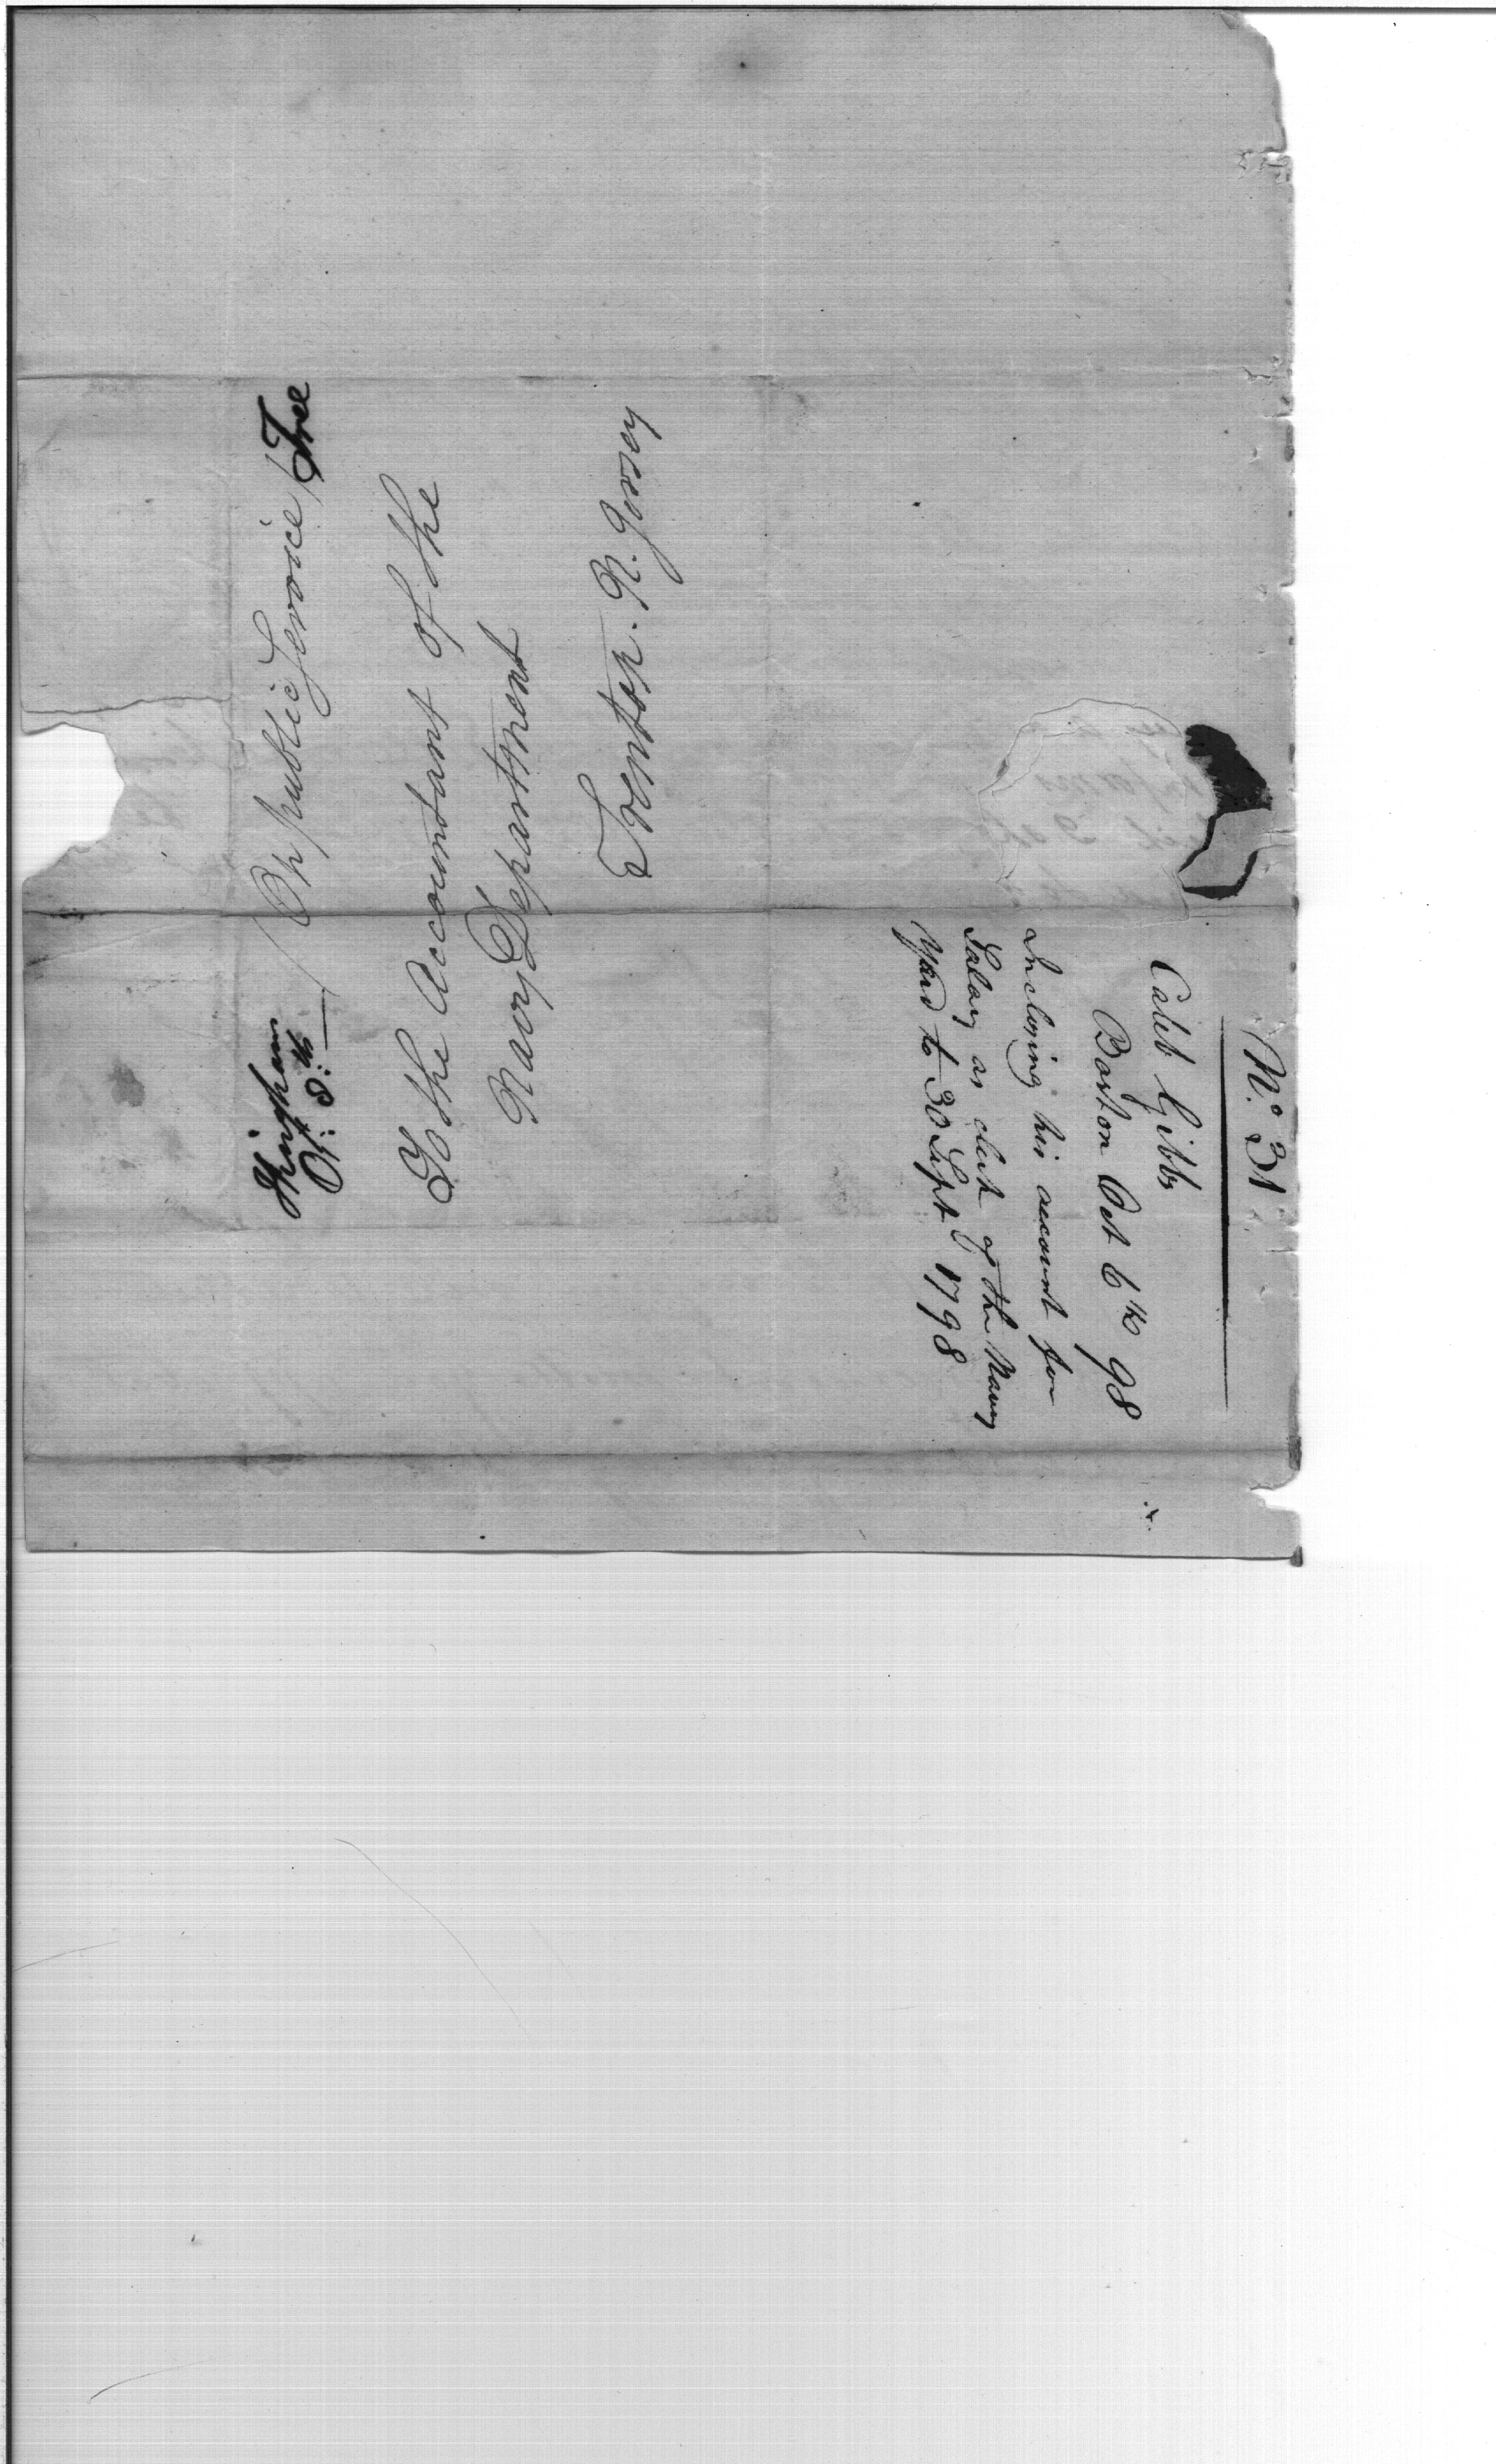 On public Service / Free
Oct. 8th
To the Accountant of the
Navy Department
Trenton. N. Jersey
No. 31
Caleb Gibbs
Boston Oct 6th 98
Inclosing his account for
Salary as clerk of the Navy
Yard to 30 Sept 1798